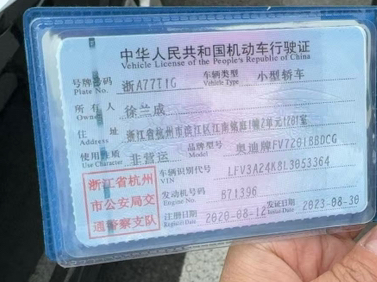 中华人民共和国机动车行驶证
Vehicle License of the People's Republic of China
号牌号码 浙A77T1G 车辆类型 小型轿车
Plate No. Vehicle Type
所有人 徐兰成
Owner
住址 浙江省杭州市滨江区江南铭庭1幢2单元1201室
Address
使用性质 非营运 品牌型号 奥迪牌FV7201BBDCG
Use Character Model
车辆识别代号 LFV3A24K8L3053364
VIN
发动机号码 871396
Engine No.
注册日期 2020-08-12 发证日期 2023-08-30
Register Date Issue Date
浙江省杭州
市公安局交
通警察支队